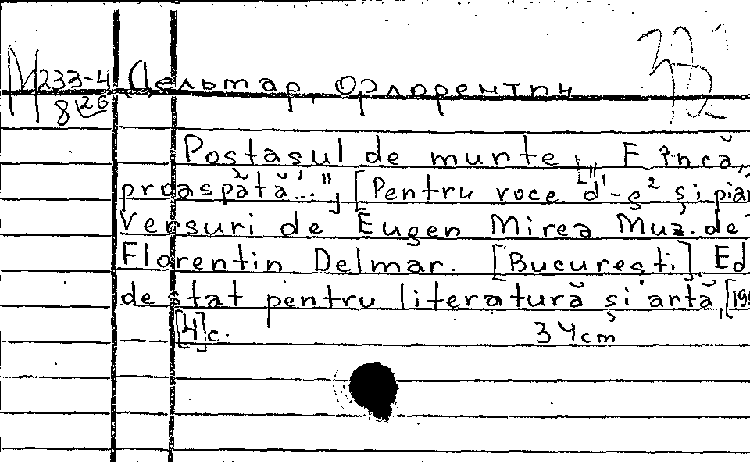 М 233-4 Дельмар, Флорентин
8 26
Postasul de munte „E încă,
proaspătă..."] [Pentru voce d¹-g² și pian
Versuri de Eugen Mirea Muz. de
Florentin Delmar. [București]. Ed
de stat pentru literatură și artă, [19
[4] c. 34cm